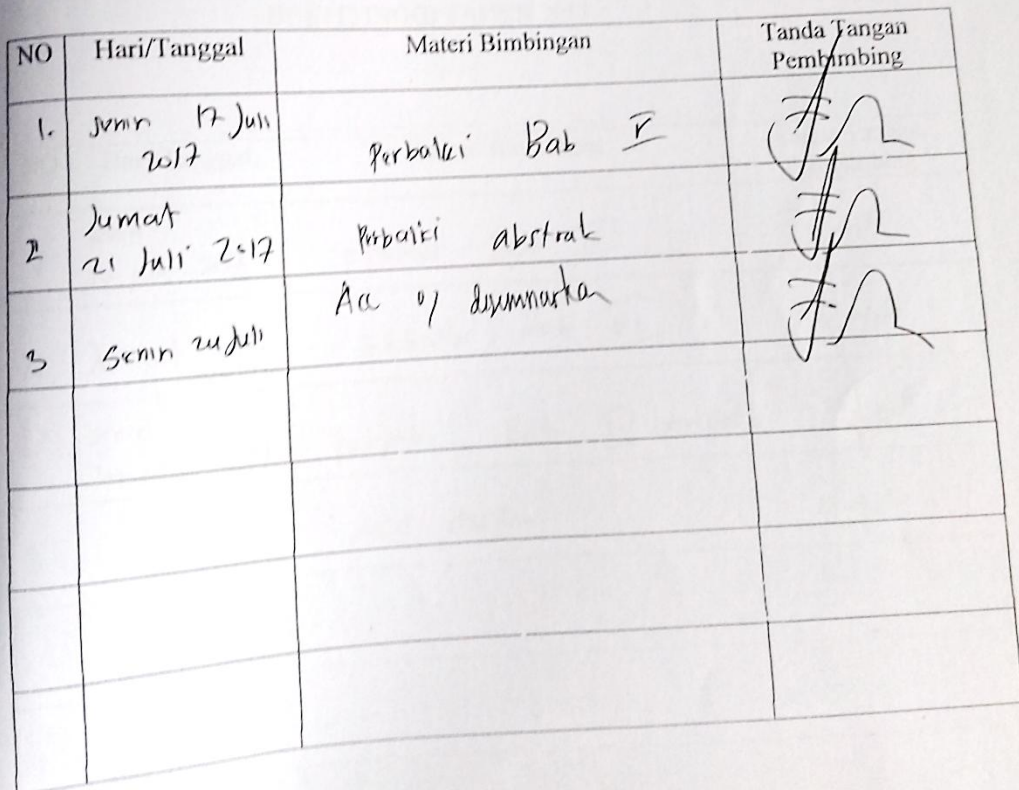 NO Hari/Tanggal Materi Bimbingan Tanda Tangan
Pembimbing
1. Senin 17 Juli
2017
Perbaiki Bab V
2 Jumat
21 Juli 2017
Perbaiki abstrak
3 Senin 24 Juli
Acc u/ diseminarkan